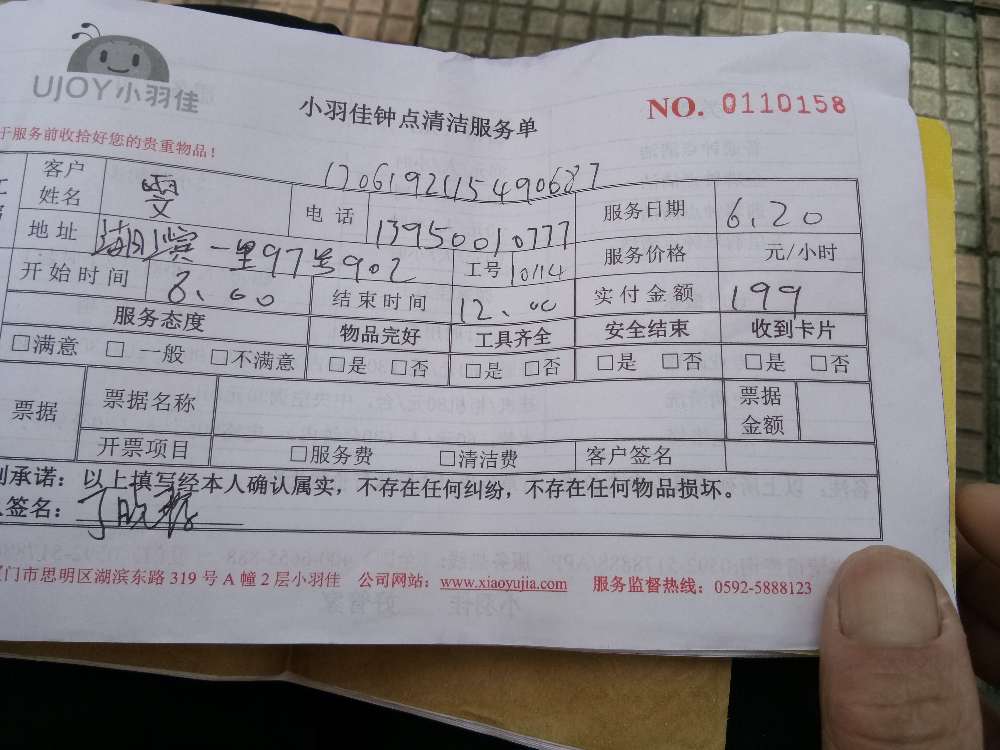 UJOY小羽佳
小羽佳钟点清洁服务单
NO. 0110158
于服务前收拾好您的贵重物品！
1206192115490627
客户姓名 雯 电话 13950010777 服务日期 6.20
地址 湖滨一里97号902 工号 10114 服务价格 元/小时
开始时间 8.00 结束时间 12.00 实付金额 199
服务态度 物品完好 工具齐全 安全结束 收到卡片
□满意 □一般 □不满意 □是 □否 □是 □否 □是 □否 □是 □否
票据 票据名称 票据金额
开票项目 □服务费 □清洁费 客户签名
承诺：以上填写经本人确认属实，不存在任何纠纷，不存在任何物品损坏。
签名：
门市思明区湖滨东路 319 号 A 幢 2 层小羽佳 公司网站：www.xiaoyujia.com 服务监督热线：0592-5888123